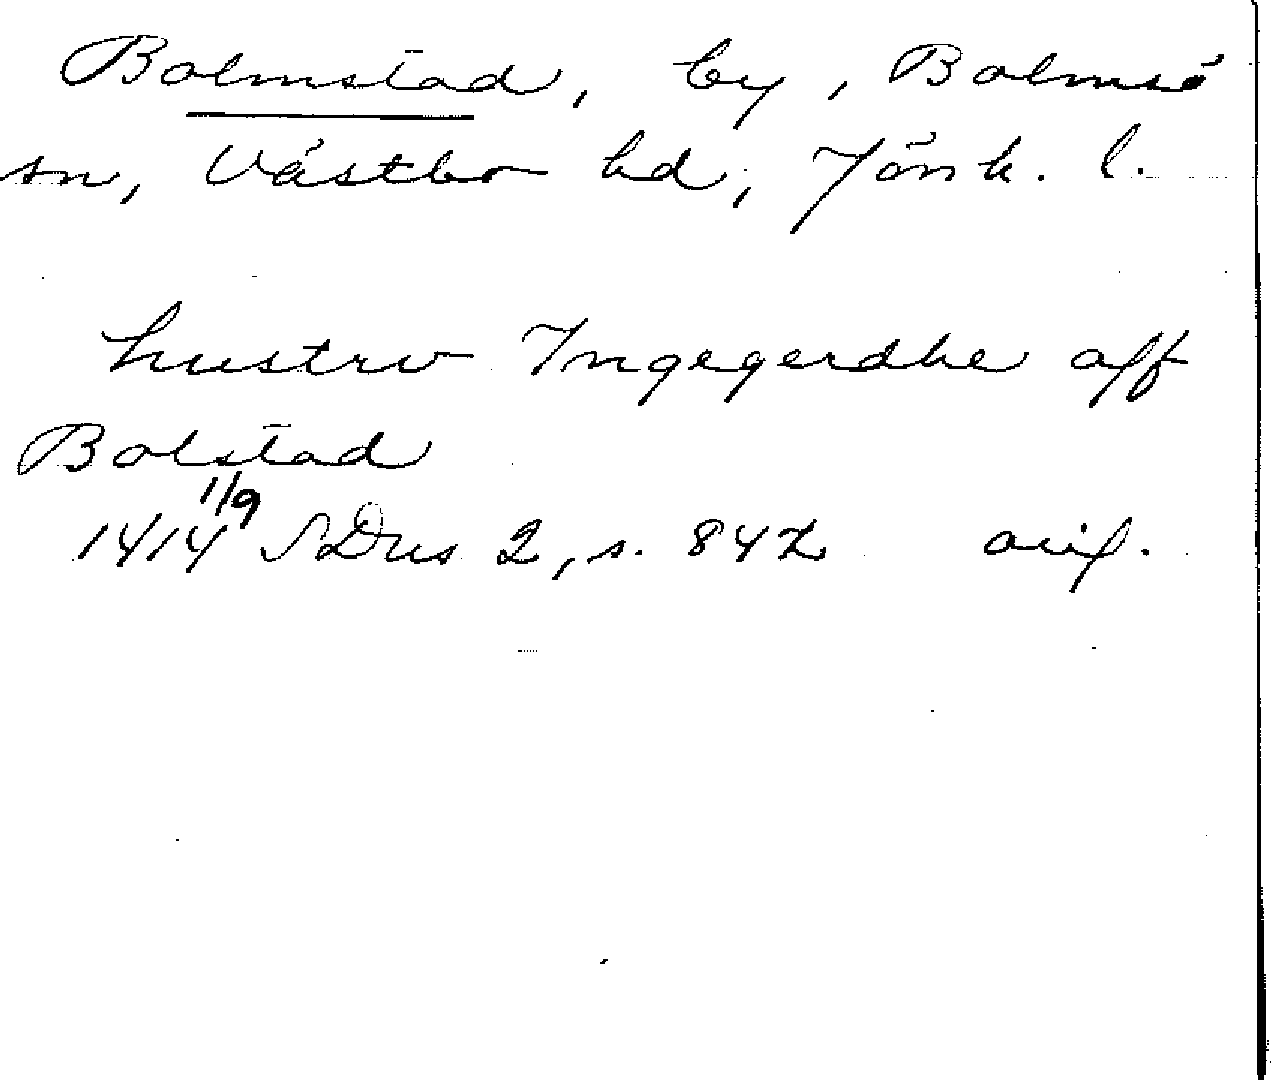 Bolmstad, by, Bolmsö
sn, Västbo hd, Jönk. l.
hustrv Ingegerdhe aff
Bolstad
1414 1/9 SDns 2, s. 842 avf.